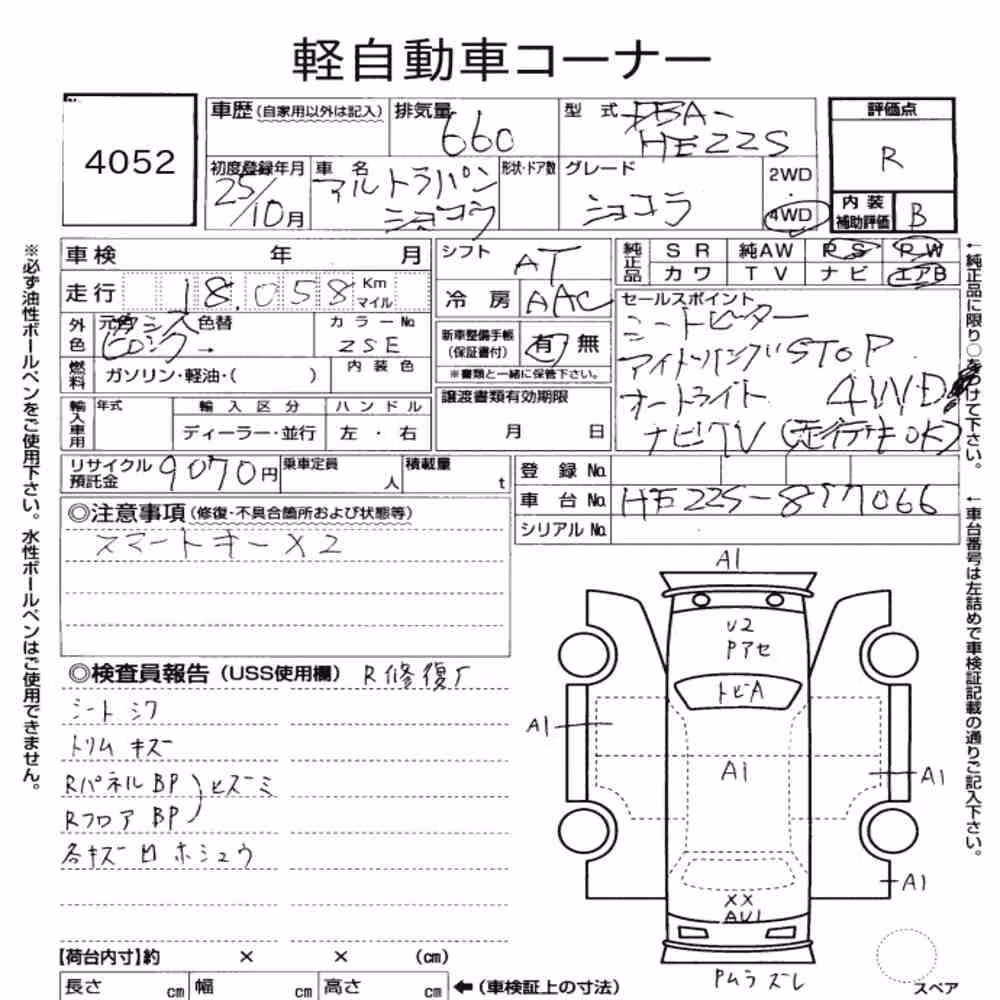 軽自動車コーナー
4052
車歴(自家用以外は記入) 排気量 660 型式 DBA-HE22S
評価点 R
初度登録年月 25/10月 車名 アルトラパンショコラ 形状・ドア数 グレード ショコラ 2WD・4WD
内装補助評価 B
車検 年 月
シフト AT
純正品 SR 純AW PS PW
カワ TV ナビ エアB
走行 18.058 Km マイル
冷房 AAC
セールスポイント
シートヒーター
アイドリングSTOP
オートライト 4WD
ナビTV(走行中OK)
外色 元色 色替 → カラーNo. ZSE
新車整備手帳(保証書付) 有 無
※書類と一緒に保管下さい。
燃料 ガソリン・軽油・( ) 内装色
譲渡書類有効期限
月 日
輸入車用 年式 輸入区分 ハンドル
ディーラー・並行 左・右
リサイクル預託金 9070円 乗車定員 人 積載量 t
登録No.
車台No. HE22S-897066
シリアルNo.
◎注意事項(修復・不具合箇所および状態等)
スマートキー×2
◎検査員報告(USS使用欄) R修復歴
シートシワ
トリムキズ
RパネルBP
RフロアBP
ヒズミ
各キズ凹ホシュウ
A1
U2
Pアセ
トビA
A1
A1
A1
A1
XX
AU1
Pムラズレ
スペア
【荷台内寸】約 × × (cm)
長さ cm 幅 cm 高さ cm ←(車検証上の寸法)
※必ず油性ボールペンをご使用下さい。水性ボールペンはご使用できません。
←純正品に限り○をつけて下さい。
←車台番号は左詰めで車検証記載の通りご記入下さい。